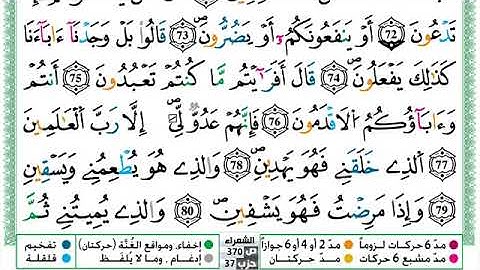 تَدْعُونَ 72 أَوْ يَنفَعُونَكُمُۥٓ أَوْ يَضُرُّونَۖ 73 قَالُواْ بَلْ وَجَدْنَآ ءَابَآءَنَا
كَذَٰلِكَ يَفْعَلُونَۖ 74 قَالَ أَفَرَٰٓيْتُم مَّا كُنتُمْ تَعْبُدُونَ 75 أَنتُمْ
وَءَابَآؤُكُمُ اُلَاقْدَمُونَ 76 فَإِنَّهُمْ عَدُوٌّ لِّيَ إِلَّا رَبَّ اَلْعَٰلَمِينَ
77 اَلذِے خَلَقَنِے فَهُوَ يَهْدِينِۖ 78 وَالذِے هُوَ يُطْعِمُنِے وَيَسْقِينِ
79 وَإِذَا مَرِضْتُ فَهُوَ يَشْفِينِۖ 80 وَالذِے يُمِيتُنِے ثُمَّ
مدّ 6 حركات لزوماً مدّ 2 أو 4 أو 6 جوازاً الشعراء 370 حزب 37 إخفاء، ومواقع الغُنَّة (حركتان) تفخيم
مدّ مشبع 6 حركات مدّ حركتان إدغام، وما لا يُلفَظ قلقلة